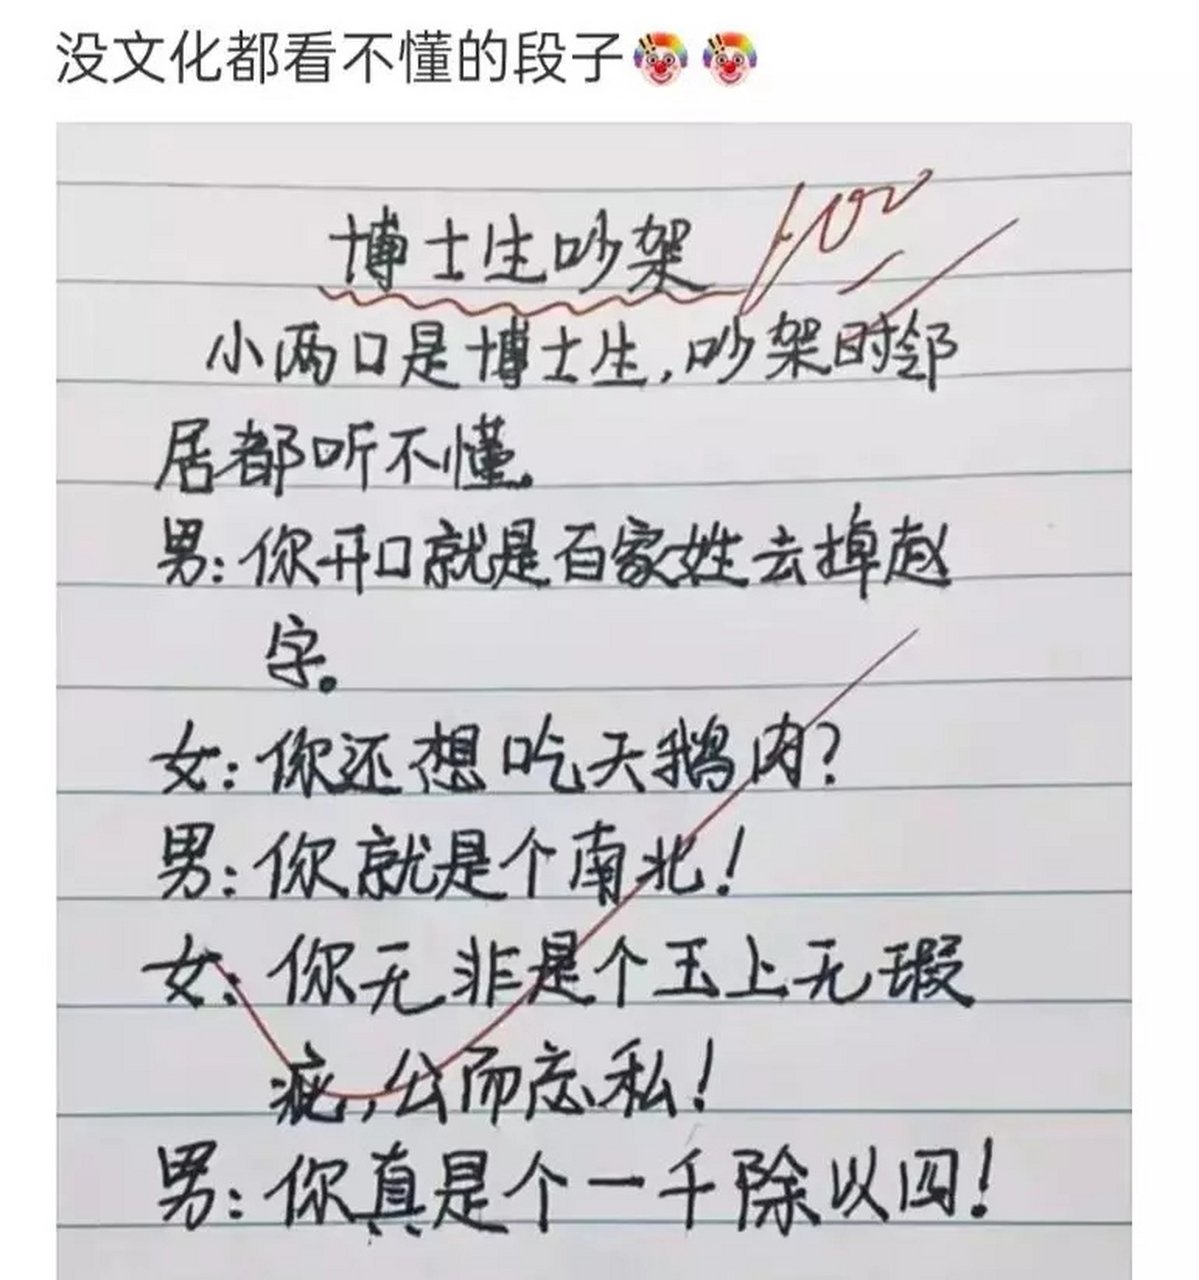 没文化都看不懂的段子🤡🤡
博士生吵架
100
小两口是博士生,吵架时邻
居都听不懂。
男:你开口就是百家姓去掉赵
字。
女:你还想吃天鹅肉?
男:你就是个南北!
女:你无非是个玉上无瑕
疵,公而忘私!
男:你真是个一千除以四!